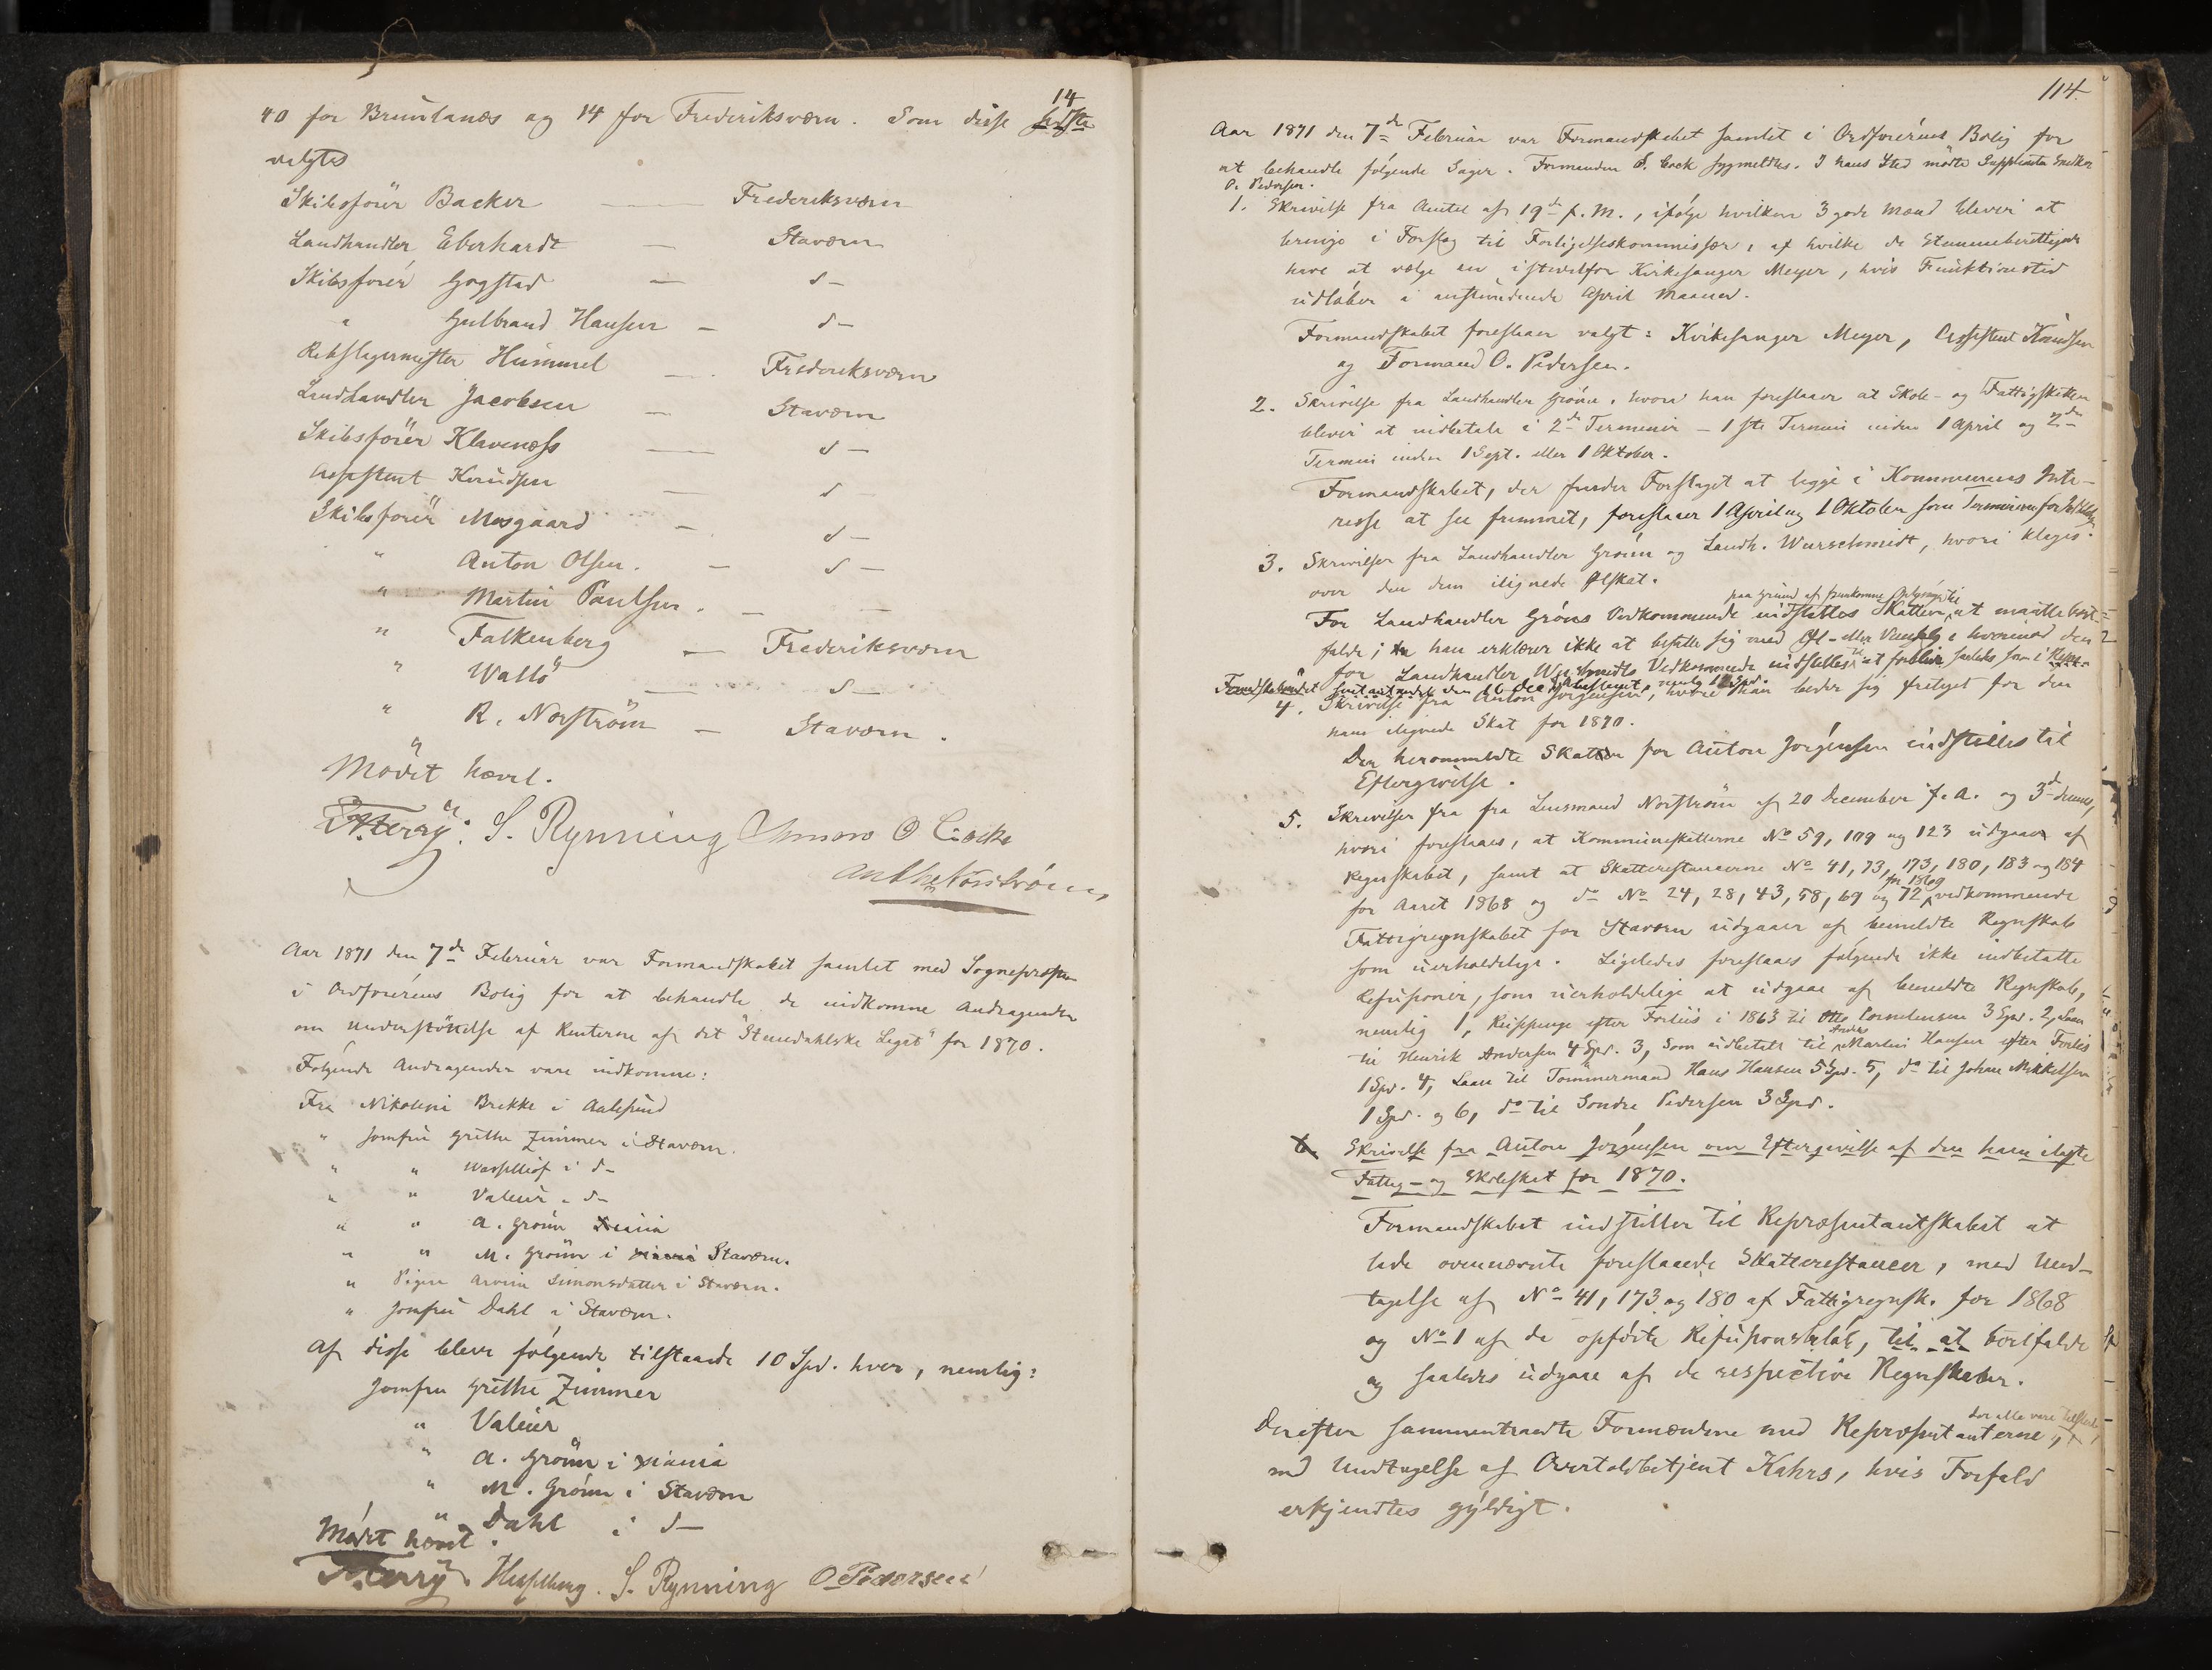 40 for Brunlanæs og 14 for Frederiksværn. Som disse sidste 14
valgtes
Skibsförer Backer — Frederiksværn
Landhandler Eberhardt — Staværn
Skibsförer Gogstad — d-
" Gulbrand Hansen — d-
Rebslagermester Hummel — Frederiksværn
Landhandler Jacobsen — Staværn
Skibsförer Klavenæss — d-
Assistent Knudsen — d
Skibsförer Mosgaard — d-
" Anton Olsen. — d-
" Martin Paulsen. — —
" Falkenberg — Frederiksværn
" Wallö — d-
" R. Norström — Staværn.
Mödet hævet.
S. Rynning
Aar 1871 den 7de Februar var Formandskabet samlet med Sognepræsten
i Ordförerens Bolig for at behandle de indkomne Andragender
om Understöttelse af Renterne af det "Stendahlske Legat" for 1870.
Følgende Andragender vare indkomne:
Fra Nikoline Brekke i Aalesund
" Jomfru Grethe Zimmer i Staværn.
" " i d-
" " Valeur i d-
" " A. Grönn Xiania
" " M. Grönn i Staværn.
" Pigen Simonsdatter i Staværn.
" Jomfru Dahl i Staværn.
Af disse bleve følgende tilstaaede 10 Spd. hver, nemlig:
Jomfru Grethe Zimmer
" Valeur
" A. Grönn i Xiania
" M. Grönn i Staværn
" Dahl i d-
Mödet hævet.
S. Rynning O Pedersen
114.
Aar 1871 den 7de Februar var Formandskabet samlet i Ordförerens Bolig for
at behandle følgende Sager. Formanden S. Cock sygmeldtes. I hans Sted mödte Suppleanten Snedker
O. Pedersen.
1. Skrivelse fra Amtet af 19de f. M., ifølge hvilken 3 gode Mænd blever at
bringe i Forslag til Forligelseskommissær, af hvilke de Stemmeberettigede
have at vælge en istedetfor Kirkesanger Meyer, hvis Funktionstid
udlöber i anstundende April Maaned.
Formandskabet foreslaaer valgt: Kirkesanger Meyer, Assistent Knudsen
og Formand O. Pedersen.
2. Skrivelse fra Landhandler Grönn, hvori han foreslaaer at Skole- og Fattigskatten
blever at indbetale i 2de Terminer – 1ste Termin inden 1 April og 2den
Termin inden 1 Sept. eller 1 Oktober.
Formandskabet, der finder Forslaget at ligge i Kommunens Inte-
resse at see fremmet, foreslaaer 1 April og 1 Oktober som Terminer for
3. Skrivelser fra Landhandler Grönn og Landh. Wurschmidt, hvori klages
over den dem ilignede Ølskat.
For Landhandler Gröns Vedkommende indstilles Skatten paa Grund af fremkomne Oplysninger til at maatte bort-
falde; da han erklærer ikke at befatte sig med Øl- eller Vinsalg, hvorimod den
for Landhandler Wurschmidts Vedkommende indstilles til at forblive saaledes som
4. Skrivelse fra Anton Jörgensen, hvori han beder sig fritaget for den
ham ilignede Skat for 1870.
Den heromméldte Skat for Anton Jörgensen indstilles til
Eftergivelse.
5. Skrivelser fra fra Lensmand Norström af 20 December f. A. og 3de dennes,
hvori foreslaaes, at Kommuneskatterne No 59, 109 og 123 udgaaer af
Regnskabet, samt at Skatterestancerne No 41, 73, 173, 180, 183 og 184
for Aaret 1868 og do No 24, 28, 43, 58, 69 og 72 for 1869 vedkommende
Fattigregnskabet for Staværn udgaaer af bemeldte Regnskab
som uerholdelige. Ligeledes foreslaaes følgende ikke indbetalte
Refusioner, som uerholdelige at udgaae af bemeldte Regnskab,
nemlig 1, Reisepenge efter Forliis i 1863 til Otto Cornelinsen 3 Spd. 2, Laan
til Henrik Andersen 4 Spd. 3, Som udbetalt til Anders Martin Hansen efter Forlis
1 Spd. 4, Laan til Tömmermand Hans Hansen 5 Spd. 5, do til Johan Mikkelsen
1 Spd. og 6, do til Sondre Pedersen 3 Spd.
6. Skrivelse fra Anton Jörgensen om Eftergivelse af den ham ilagte
Fattig- og Skoleskat for 1870.
Formandskabet indstiller til Repræsentantskabet at
lade ovennævnte foreslaaede Skatterestancer, med Und-
tagelse af No 41, 173 og 180 af Fattigregnsk. for 1868
og No 1 af de opförte Refusionsbelöb, til at bortfalde
og saaledes udgaae af de respective Regnskaber.
Derefter sammentraadte Formændene med Repræsentanterne, der alle vare tilstede,
med Undtagelse af Overtoldbetjent Kahrs, hvis Forfald
erkjendtes gyldigt.